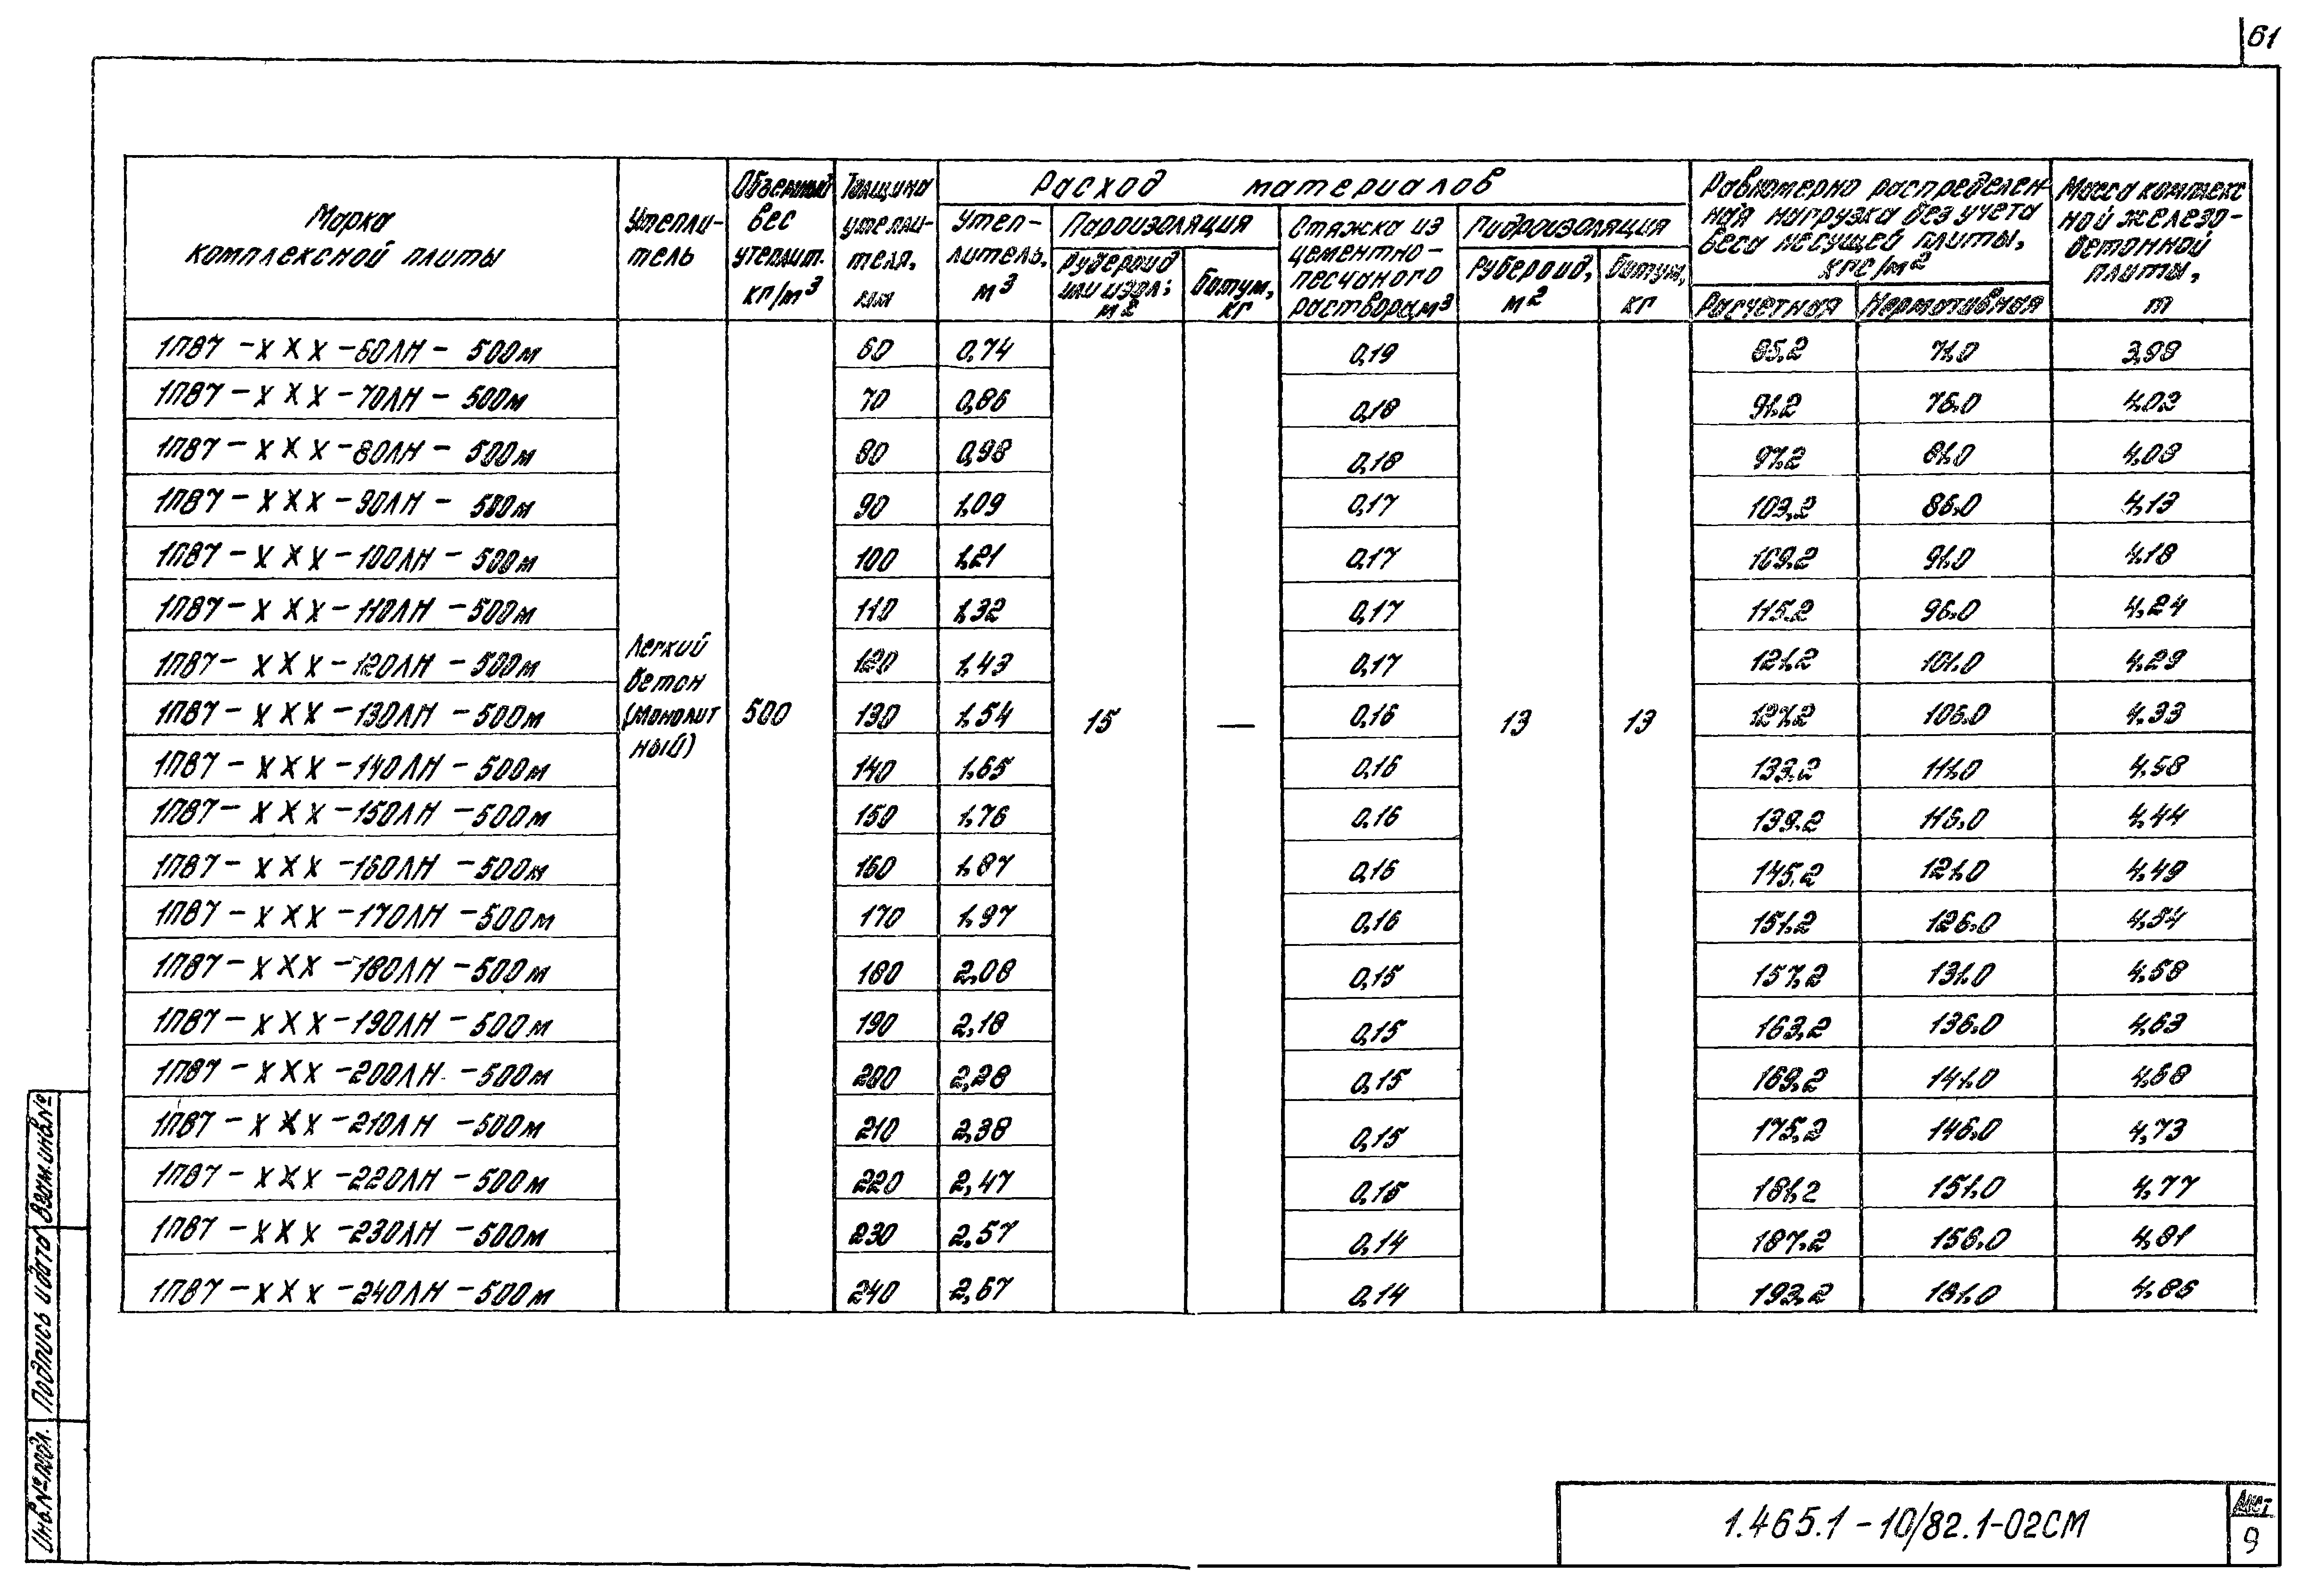 61
Марка
комплексной плиты
Утепли-
тель
Объемный
вес
утеплит.
кг/м³
Толщина
утепли-
теля,
мм
Расход материалов
Утеп-
литель,
м³
Пароизоляция
Рубероид
или изол;
м²
Битум,
кг
Стяжка из
цементно-
песчаного
раствора,м³
Гидроизоляция
Рубероид,
м²
Битум,
кг
Равномерно распределен-
ная нагрузка без учета
веса несущей плиты,
кгс/м²
Расчетная
Нормативная
Масса комплекс
ной железо-
бетонной
плиты,
т
Легкий
бетон
(монолит
ный)
500
15
—
13
13
1П87-ХХХ-60ЛН-500м 60 0,74 0,19 85.2 71.0 3,98
1П87-ХХХ-70ЛН-500м 70 0,86 0,18 91.2 76.0 4.03
1П87-ХХХ-80ЛН-500м 80 0,98 0,18 97.2 81.0 4.08
1П87-ХХХ-90ЛН-500м 90 1.09 0,17 103.2 86.0 4,13
1П87-ХХХ-100ЛН-500м 100 1.21 0,17 109.2 91.0 4.18
1П87-ХХХ-110ЛН-500м 110 1,32 0,17 115.2 96.0 4.24
1П87-ХХХ-120ЛН-500м 120 1.43 0,17 121.2 101.0 4.29
1П87-ХХХ-130ЛН-500м 130 1.54 0,16 127.2 106.0 4.33
1П87-ХХХ-140ЛН-500м 140 1.65 0,16 133.2 111.0 4.58
1П87-ХХХ-150ЛН-500м 150 1.76 0,16 139.2 116.0 4.44
1П87-ХХХ-160ЛН-500м 160 1.87 0,16 145.2 121.0 4.49
1П87-ХХХ-170ЛН-500м 170 1.97 0,16 151.2 126.0 4.54
1П87-ХХХ-180ЛН-500м 180 2,08 0,15 157.2 131.0 4.58
1П87-ХХХ-190ЛН-500м 190 2,18 0,15 163.2 136.0 4.63
1П87-ХХХ-200ЛН-500м 200 2,28 0,15 169.2 141.0 4.68
1П87-ХХХ-210ЛН-500м 210 2,38 0,15 175.2 146.0 4,73
1П87-ХХХ-220ЛН-500м 220 2,47 0,15 181.2 151.0 4,77
1П87-ХХХ-230ЛН-500м 230 2.57 0,14 187.2 156.0 4,81
1П87-ХХХ-240ЛН-500м 240 2,67 0,14 193.2 161.0 4.86
Инв.№ подл.
Подпись и дата
Взам.инв.№
1.465.1-10/82.1-02СМ
Лист
9